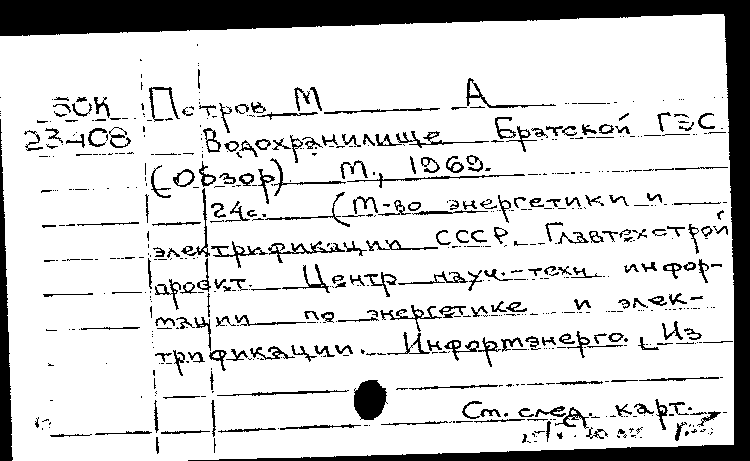 БОК Петров, М А
23408 Водохранилище Братской ГЭС
(Обзор) М., 1969.
24с. (М-во энергетики и
электрификации СССР. Главтехстрой
проект. Центр науч.-техн. инфор-
мации по энергетике и элек-
трификации. Информэнерго. Из
См. след. карт.